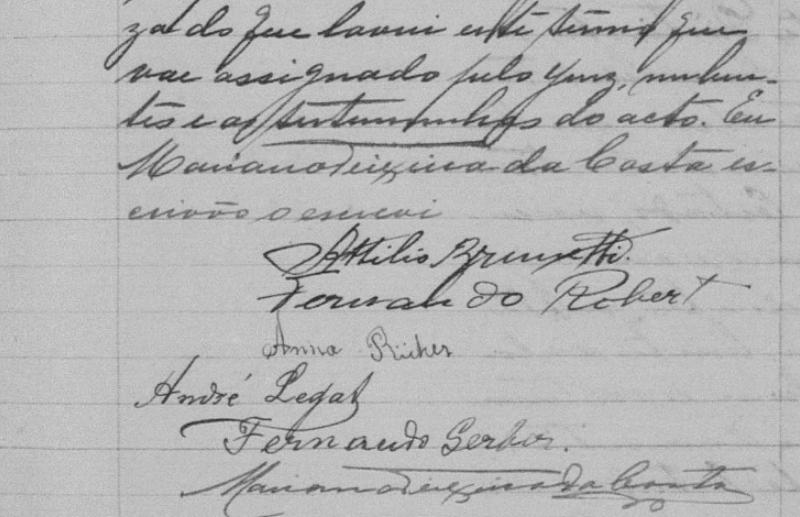 zado que lavrei este termo que
vae assignado pelo Juiz, nuben-
tes e as testemunhas do acto. Eu
Mariano Teixeira da Costa es-
crivão o escrevi
Attilio Brunetti.
Fernando Robert
Anna Rücker
André Legat
Fernando Gerber.
Mariano Teixeira da Costa